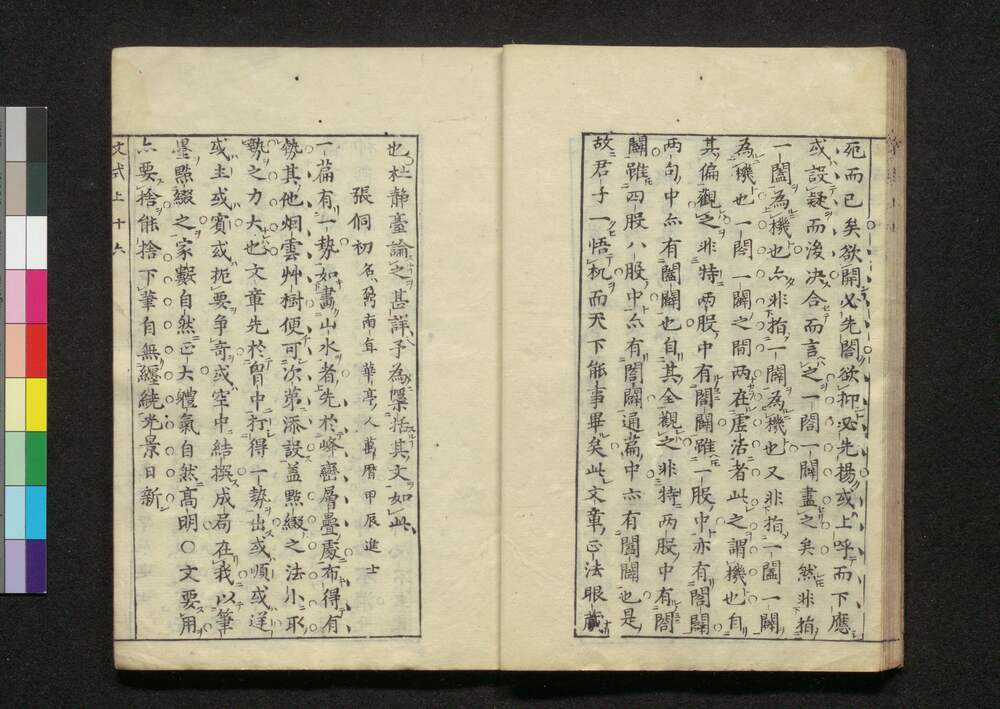 死而已矣欲開必先闔欲抑必先揚或上呼而下應
或設疑而後决合而言之一闔一闢盡之矣然非指
一闔為機也亦非指一闢為機也又非指一闔一闢
為機也一闔一闢之間兩在虛活者此之謂機也自
其偏觀之非特两股中有闔闢雖一股中亦有闔闢
两句中亦有闔闢也自其全觀之非特两股中有闔
闢雖四股八股中亦有闔闢通篇中亦有闔闢也是
故君子一悟机而天下能事畢矣此文章正法眼藏
也杜靜臺論之甚詳予為櫽括其文如此
張侗初名鼐南年華亭人萬曆甲辰進士
一篇有一勢如畫山水者先於峰巒層疊處布得有
勢其他烟雲艸樹便可次第添設盖㸃綴之法小取
勢之力大也文章先於胷中打得一勢出或順或逆
或主或賓或扼要爭奇或空中結撰成局在我以筆
墨㸃綴之家數自然正大體氣自然高明〇文要用
亦要捨能捨下筆自無纏繞光景日新
文式上十六